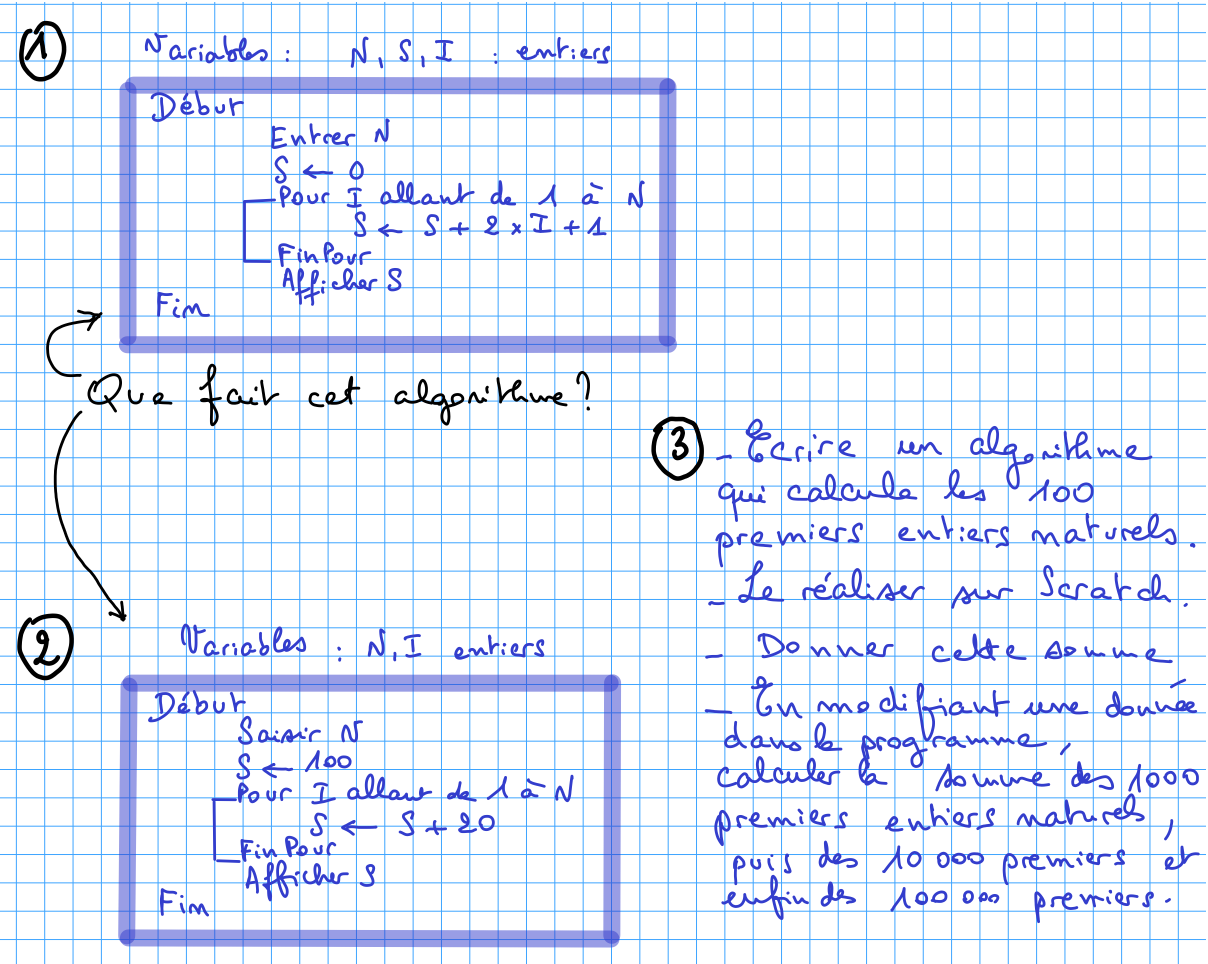 1
Variables : N, S, I : entiers
Début
Entrer N
S ← 0
Pour I allant de 1 à N
S ← S + 2 × I + 1
FinPour
Afficher S
Fin
Que fait cet algorithme ?
2
Variables : N, I entiers
Début
Saisir N
S ← 100
Pour I allant de 1 à N
S ← S + 20
FinPour
Afficher S
Fin
3
- Ecrire un algorithme
qui calcule les 100
premiers entiers naturels.
- Le réaliser sur Scratch.
- Donner cette somme
- En modifiant une donnée
dans le programme,
calculer la somme des 1000
premiers entiers naturels,
puis des 10 000 premiers et
enfin des 100 000 premiers.